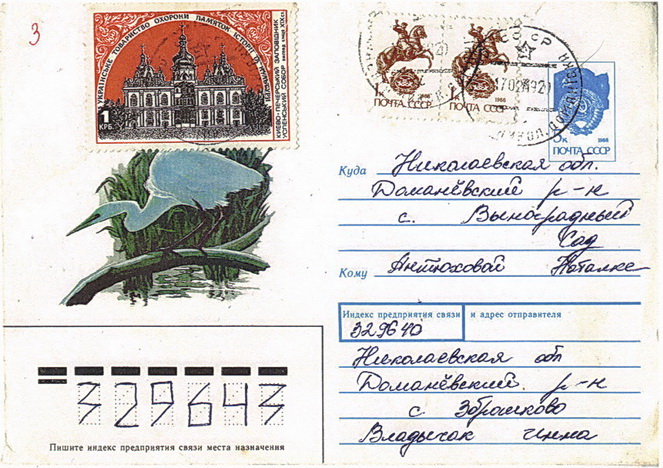 3
УКРАЇНСЬКЕ ТОВАРИСТВО ОХОРОНИ ПАМЯТОК ІСТОРІЇ
КИЄВО-ПЕЧЕРСЬКИЙ ЗАПОВІДНИК
УСПЕНСЬКИЙ СОБОР
1
КРБ.
1к 1988
ПОЧТА СССР
1к 1988
ПОЧТА СССР
СССР
17 02 92
5к 1988
ПОЧТА СССР
Куда Николаевская обл.
Доманёвский р-н
с. Выноградный
Сад
Кому Антюховой Наталке
Индекс предприятия связи и адрес отправителя
329640
Николаевская обл
Доманёвский р-н
с Збрашково
Владычак Инна
329643
Пишите индекс предприятия связи места назначения